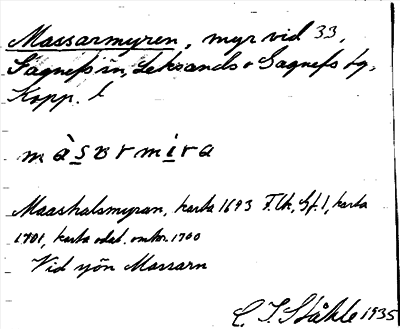 Massarmyren, myr vid 33,
Gagnefs sn, Leksands o Gagnefs tg,
Kopp. l
màsɐrmira
Maashalsmyran, karta 1693 F.Ch, Gf.1, karta
1701, karta odat. omkr. 1700
Vid sjön Massarn
C. I. Ståhle 1935